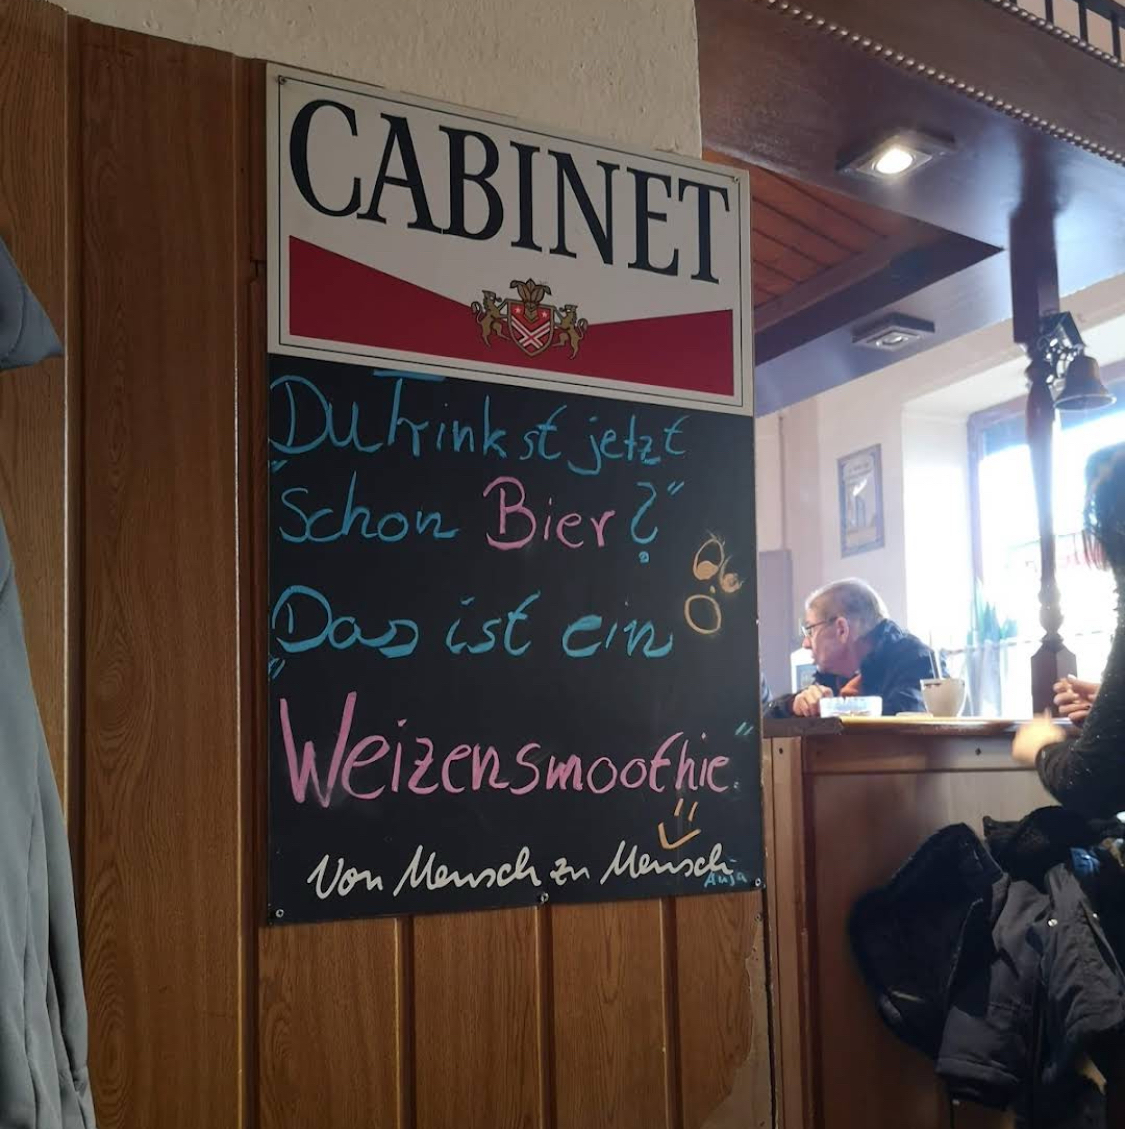 CABINET
„Du Trinkst jetzt
schon Bier?“
„Das ist ein
Weizensmoothie.“
Von Mensch zu Mensch